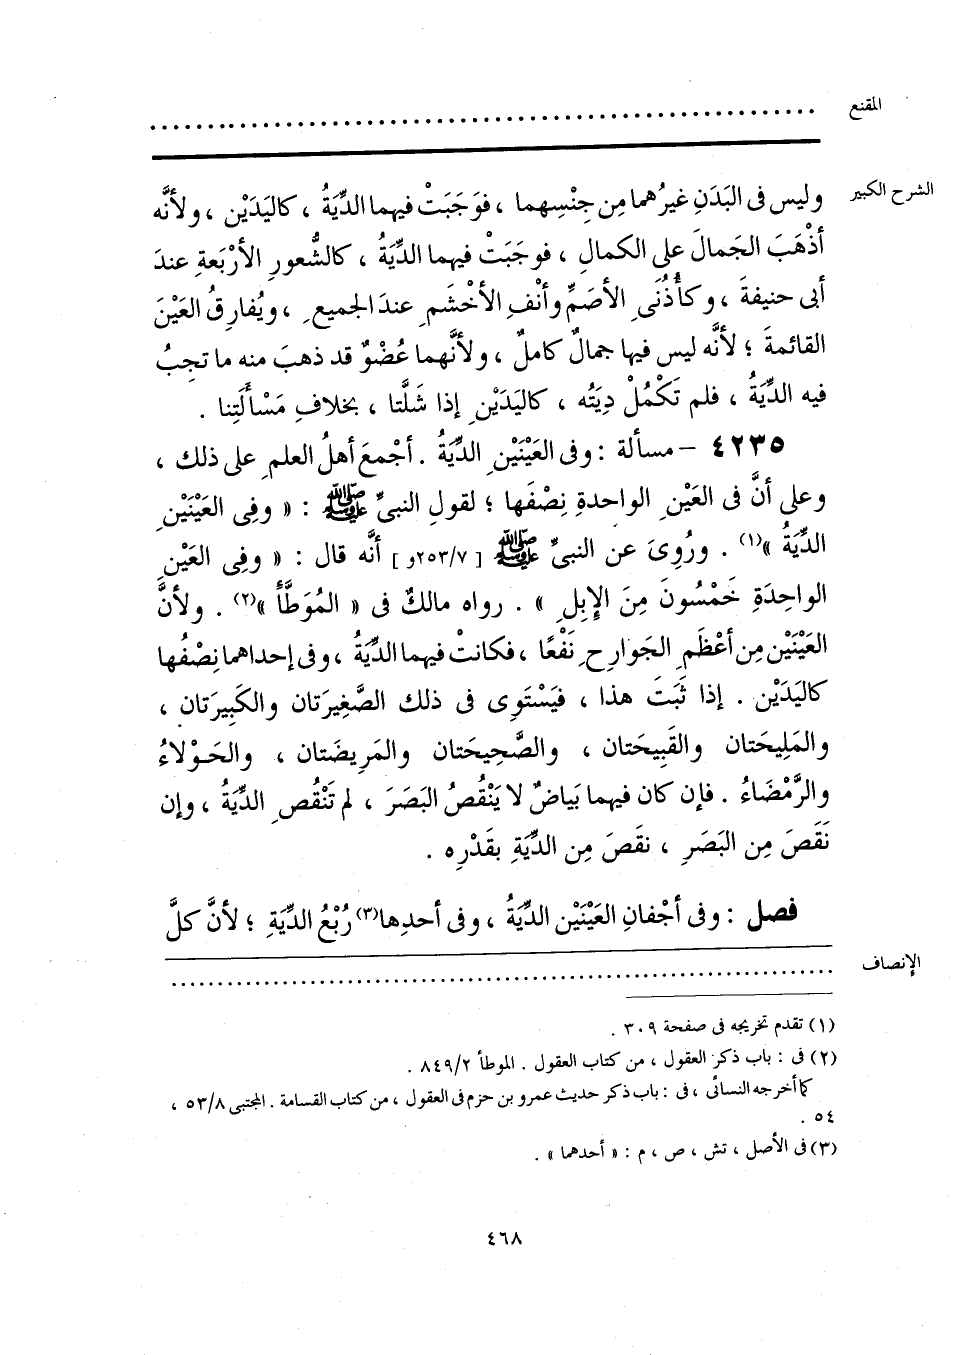 المقنع ........................................................................
الشرح الكبير وليس فى البَدَنِ غيرُهما مِن جِنْسِهما ، فوَجَبَتْ فيهما الدِّيَةُ ، كاليَدَيْن ، ولأنَّه
أذْهَبَ الجَمالَ على الكمالِ ، فوجَبَتْ فيهما الدِّيَةُ ، كالشُّعورِ الأرْبَعةِ عندَ
أبى حنيفةَ ، وكأُذُنَىِ الأصَمِّ وأنْفِ الأخْشَمِ عندَ الجميعِ ، ويُفارِقُ العَيْنَ
القائمةَ ؛ لأنَّه ليس فيها جمالٌ كاملٌ ، ولأنَّهما عُضْوٌ قد ذهبَ منه ما تجبُ
فيه الدِّيَةُ ، فلم تَكْمُلْ دِيَتُه ، كاليَدَيْنِ إذا شَلَّتا ، بخلافِ مَسْألَتِنا .
٤٢٣٥ – مسألة : وفى العَيْنَيْنِ الدِّيَةُ . أجْمعَ أهلُ العلمِ على ذلك ،
وعلى أنَّ فى العَيْنِ الواحدةِ نِصْفَها ؛ لقولِ النبىِّ ﷺ : « وفِى العَيْنَيْنِ
الدِّيَةُ »(١) . ورُوِىَ عن النبىِّ ﷺ [ ٢٥٣/٧و ] أنَّه قال : « وفِى العَيْنِ
الواحِدَةِ خَمْسُونَ مِنَ الإِبِلِ » . رواه مالكٌ فى « المُوَطَّأ »(٢) . ولأنَّ
العَيْنَيْن مِن أعْظَمِ الجَوارِحِ نَفْعًا ، فكانتْ فيهما الدِّيَةُ ، وفى إحداهما نِصْفُها
كاليَدَيْن . إذا ثَبَتَ هذا ، فيَسْتَوِى فى ذلك الصَّغِيرَتان والكَبِيرَتان ،
والمَلِيحَتان والقَبِيحَتان ، والصَّحِيحَتان والمَرِيضَتان ، والحَوْلاءُ
والرَّمْضَاءُ . فإن كان فيهما بَياضٌ لا يَنْقُصُ البَصَرَ ، لم تَنْقُصِ الدِّيَةُ ، وإن
نَقَصَ مِن البَصَرِ ، نقَصَ مِن الدِّيَةِ بقَدْرِه .
فصل : وفى أجْفانِ العَيْنَيْن الدِّيَةُ ، وفى أحدِها(٣) رُبْعُ الدِّيَةِ ؛ لأنَّ كلَّ
الإنصاف ........................................................................
(١) تقدم تخريجه فى صفحة ٣٠٩ .
(٢) فى : باب ذكر العقول ، من كتاب العقول . الموطأ ٨٤٩/٢ .
كما أخرجه النسائى ، فى : باب ذكر حديث عمرو بن حزم فى العقول ، من كتاب القسامة . المجتبى ٥٣/٨ ،
٥٤ .
(٣) فى الأصل ، تش ، ص ، م : « أحدهما » .
٤٦٨